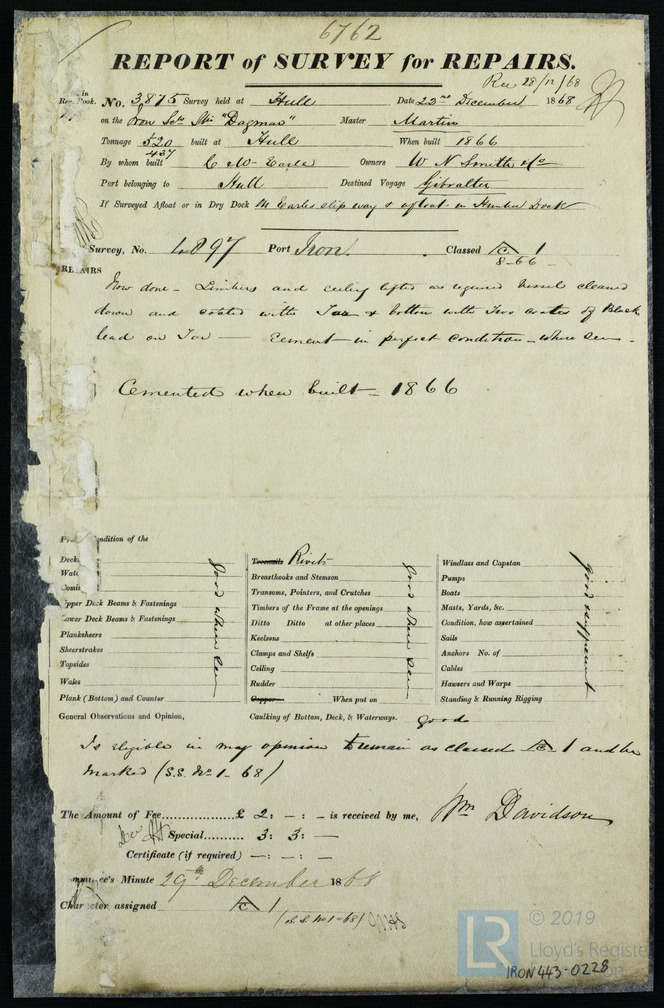 6762
REPORT of SURVEY for REPAIRS.
Rec 28/12/68
in
Reg. Book. No. 3,875 Survey held at Hull Date 23rd December 1868
on the Iron Scr Str "Dagmar" Master Martin
Tonnage 520 built at Hull When built 1866
437
By whom built C & W Earle Owners W N Smith & Co
Port belonging to Hull Destined Voyage Gibralter
If Surveyed Afloat or in Dry Dock M Earles slip way & afloat in Humber Dock
Survey, No. 4897 Port Iron. Classed A 1
8-66
REPAIRS
Now done - Limbers and ceiling lifted as required Vessel cleaned
down and coated with Tar & bottom with Two coates of Black
lead on Tar — Cement in perfect condition - where seen -
Cemented when built - 1866
ndition of the
Deck
Upper Deck Beams & Fastenings
Lower Deck Beams & Fastenings
Planksheers
Sheerstrakes
Topsides
Wales
Plank (Bottom) and Counter
Good where seen
Treenails Rivets
Breasthooks and Stemson
Transoms, Pointers, and Crutches
Timbers of the Frame at the openings
Ditto Ditto at other places
Keelsons
Clamps and Shelfs
Ceiling
Rudder
Copper When put on
Good where seen
Windlass and Capstan
Pumps
Boats
Masts, Yards, &c.
Condition, how ascertained
Sails
Anchors No. of
Cables
Hawsers and Warps
Standing & Running Rigging
Good & efficient
General Observations and Opinion, Caulking of Bottom, Deck, & Waterways. good
Is eligible in my opinion to remain as classed A 1 and be
marked (S.S. No 1 - 68)
The Amount of Fee £ 2: -: - is received by me, Wm Davidson
Special 3: 3: —
Certificate (if required) —: -: —
Committee's Minute 29th December 1868
Character assigned A 1
(S.S. No 1-68)
LR © 2019
Lloyd's Register
IRON 443-0228